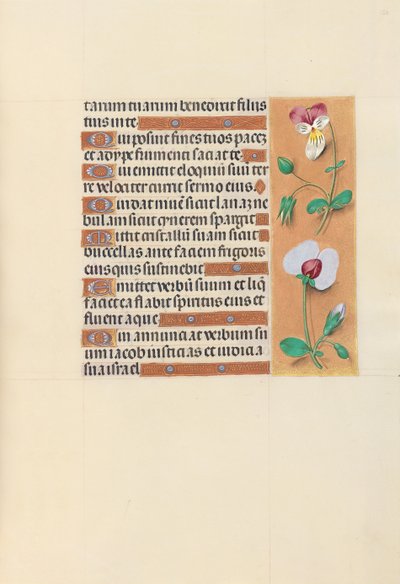 tarum tuarum benedixit filiis
tuis in te
Qui posuit fines tuos pacez
et adype frumenti saciat te
Qui emittit eloquiũ suũ ter
re velociter currit sermo eius
Qui dat nivẽ sicut lanaz ne
bulam sicut cynerem spargit
Mittit cristallũ suam sicut
buccellas ante faciem frigoris
eius quis sustinebit
Emittet verbũ suum et liq̃
faciet ea flabit spiritus eius et
fluent aque
Qui annunciat verbum su
um iacob iusticias et iudicia
sua israel